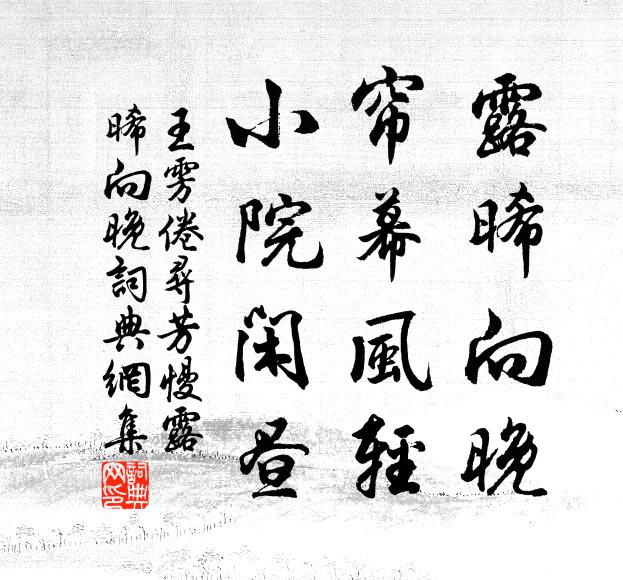 露晞向晚
帘幕風輕
小院閑昼
王雱倦尋芳慢露
晞向晚詞典網集
詞典
网印